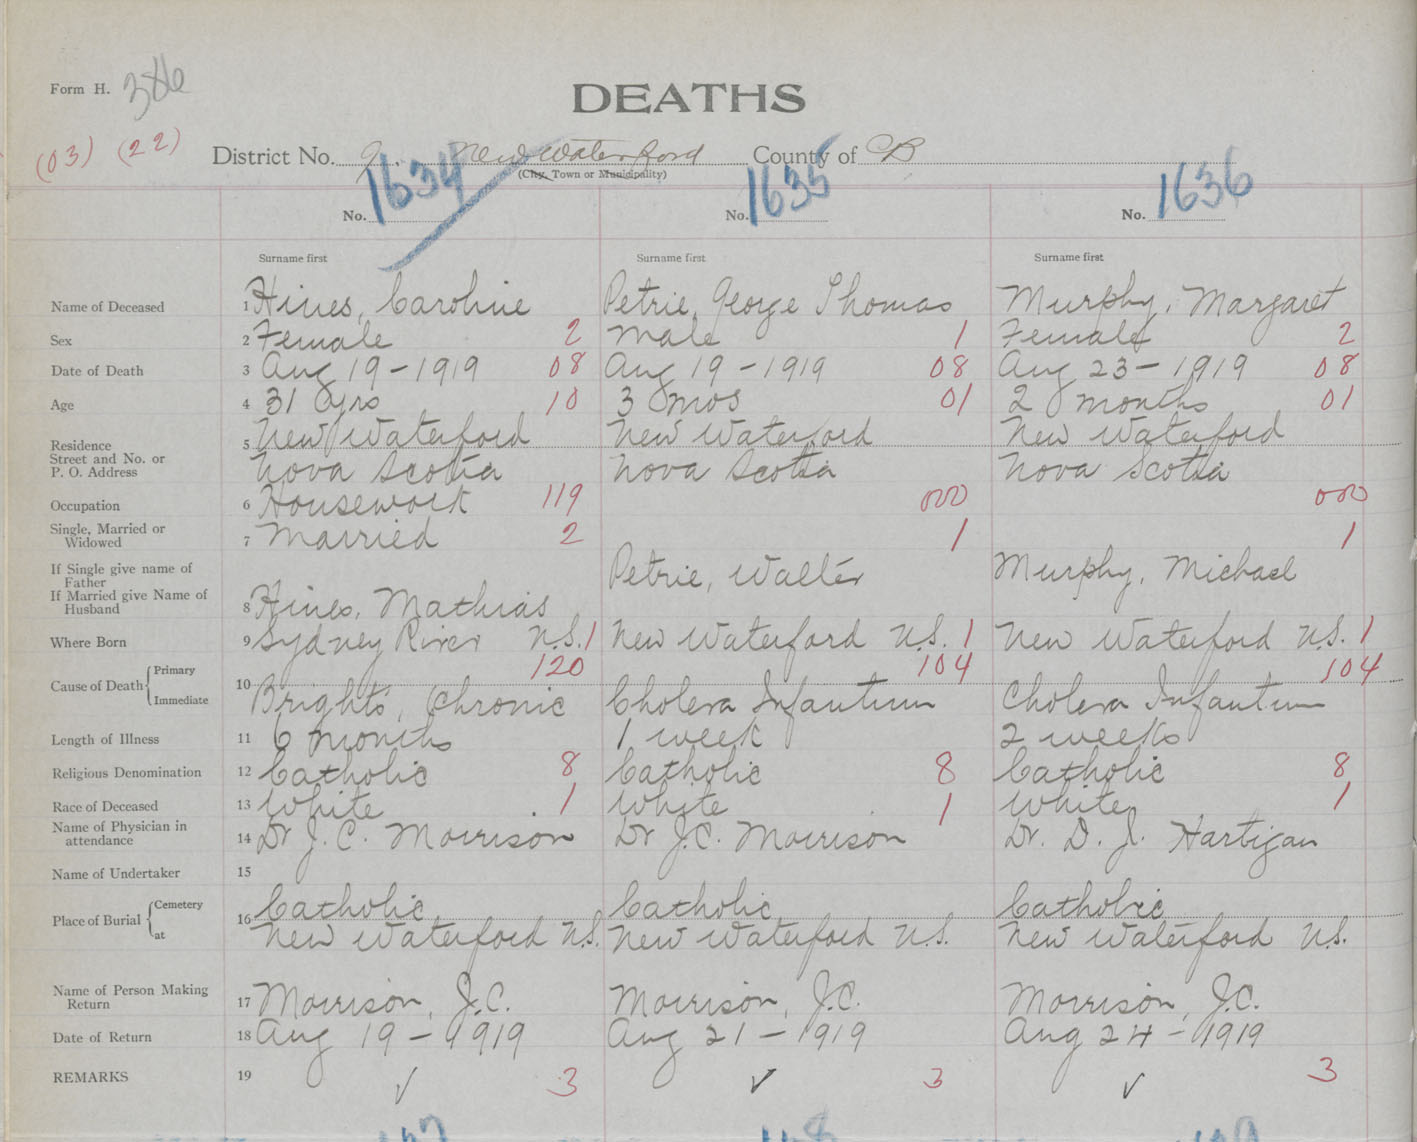 Form H. 386
DEATHS
(03) (22)
District No. 9. New Waterford County of CB
(City, Town or Municipality)
No. 1634 No. 1635 No. 1636
Surname first Surname first Surname first
Name of Deceased 1 Hines, Caroline Petrie, George Thomas Murphy, Margaret
Sex 2 Female 2 Male 1 Female 2
Date of Death 3 Aug 19-1919 08 Aug 19-1919 08 Aug 23-1919 08
Age 4 31 yrs 10 3 mos 01 2 months 01
Residence 5 New Waterford New Waterford New Waterford
Street and No. or
P. O. Address Nova Scotia Nova Scotia Nova Scotia
Occupation 6 Housework 119 000 000
Single, Married or
Widowed 7 Married 2 1 1
If Single give name of
Father Petrie, Walter Murphy, Michael
If Married give Name of
Husband 8 Hines, Mathias
Where Born 9 Sydney River N.S. 1 New Waterford N.S. 1 New Waterford N.S. 1
Cause of Death Primary 10 120 104 104
Immediate Brights', Chronic Cholera Infantum Cholera Infantum
Length of Illness 11 6 months 1 week 2 weeks
Religious Denomination 12 Catholic 8 Catholic 8 Catholic 8
Race of Deceased 13 White 1 White 1 White 1
Name of Physician in
attendance 14 Dr J. C. Morrison Dr J.C. Morrison Dr. D. J. Hartigan
Name of Undertaker 15
Place of Burial Cemetery 16 Catholic Catholic Catholic
at New Waterford N.S. New Waterford N.S. New Waterford N.S.
Name of Person Making
Return 17 Morrison, J.C. Morrison, J.C. Morrison, J.C.
Date of Return 18 Aug 19-1919 Aug 21-1919 Aug 24-1919
REMARKS 19 ✓ 3 ✓ 3 ✓ 3